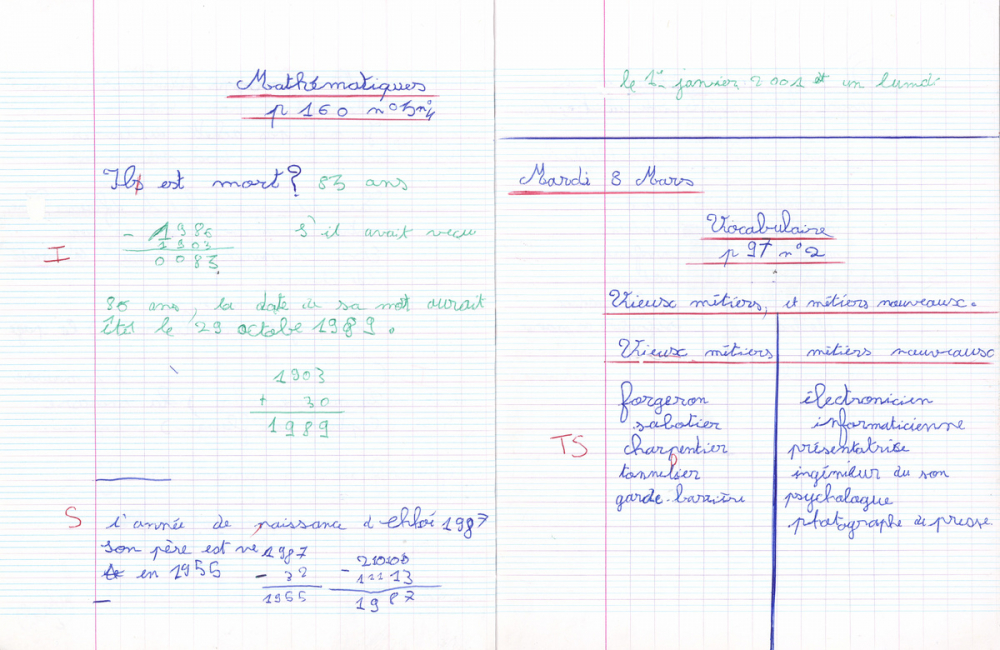 Mathématiques
p 160 n°3 n°4
Ils est mort? 83 ans
- 1986 S'il avait vecu
1903
I
0083
ans, la date de sa mort aurait
été le 29 octobre 1989.
1903
+ 30
1989
S l'année de naissance d Chloé 1987
son père est né 1987 21000
en 1955 - 32 - 13
1955 1987
le 1er janvier 2001 et un lundi
Mardi 8 Mars
Vocabulaire
p 97 n°2
Vieux métiers, et métiers nouveaux.
Vieux métiers métiers nouveaux
forgeron électronicien
sabotier informaticienne
TS charpentier présentatrice
tonnelier ingénieur du son
garde-barrière psychologue
photographe de presse.